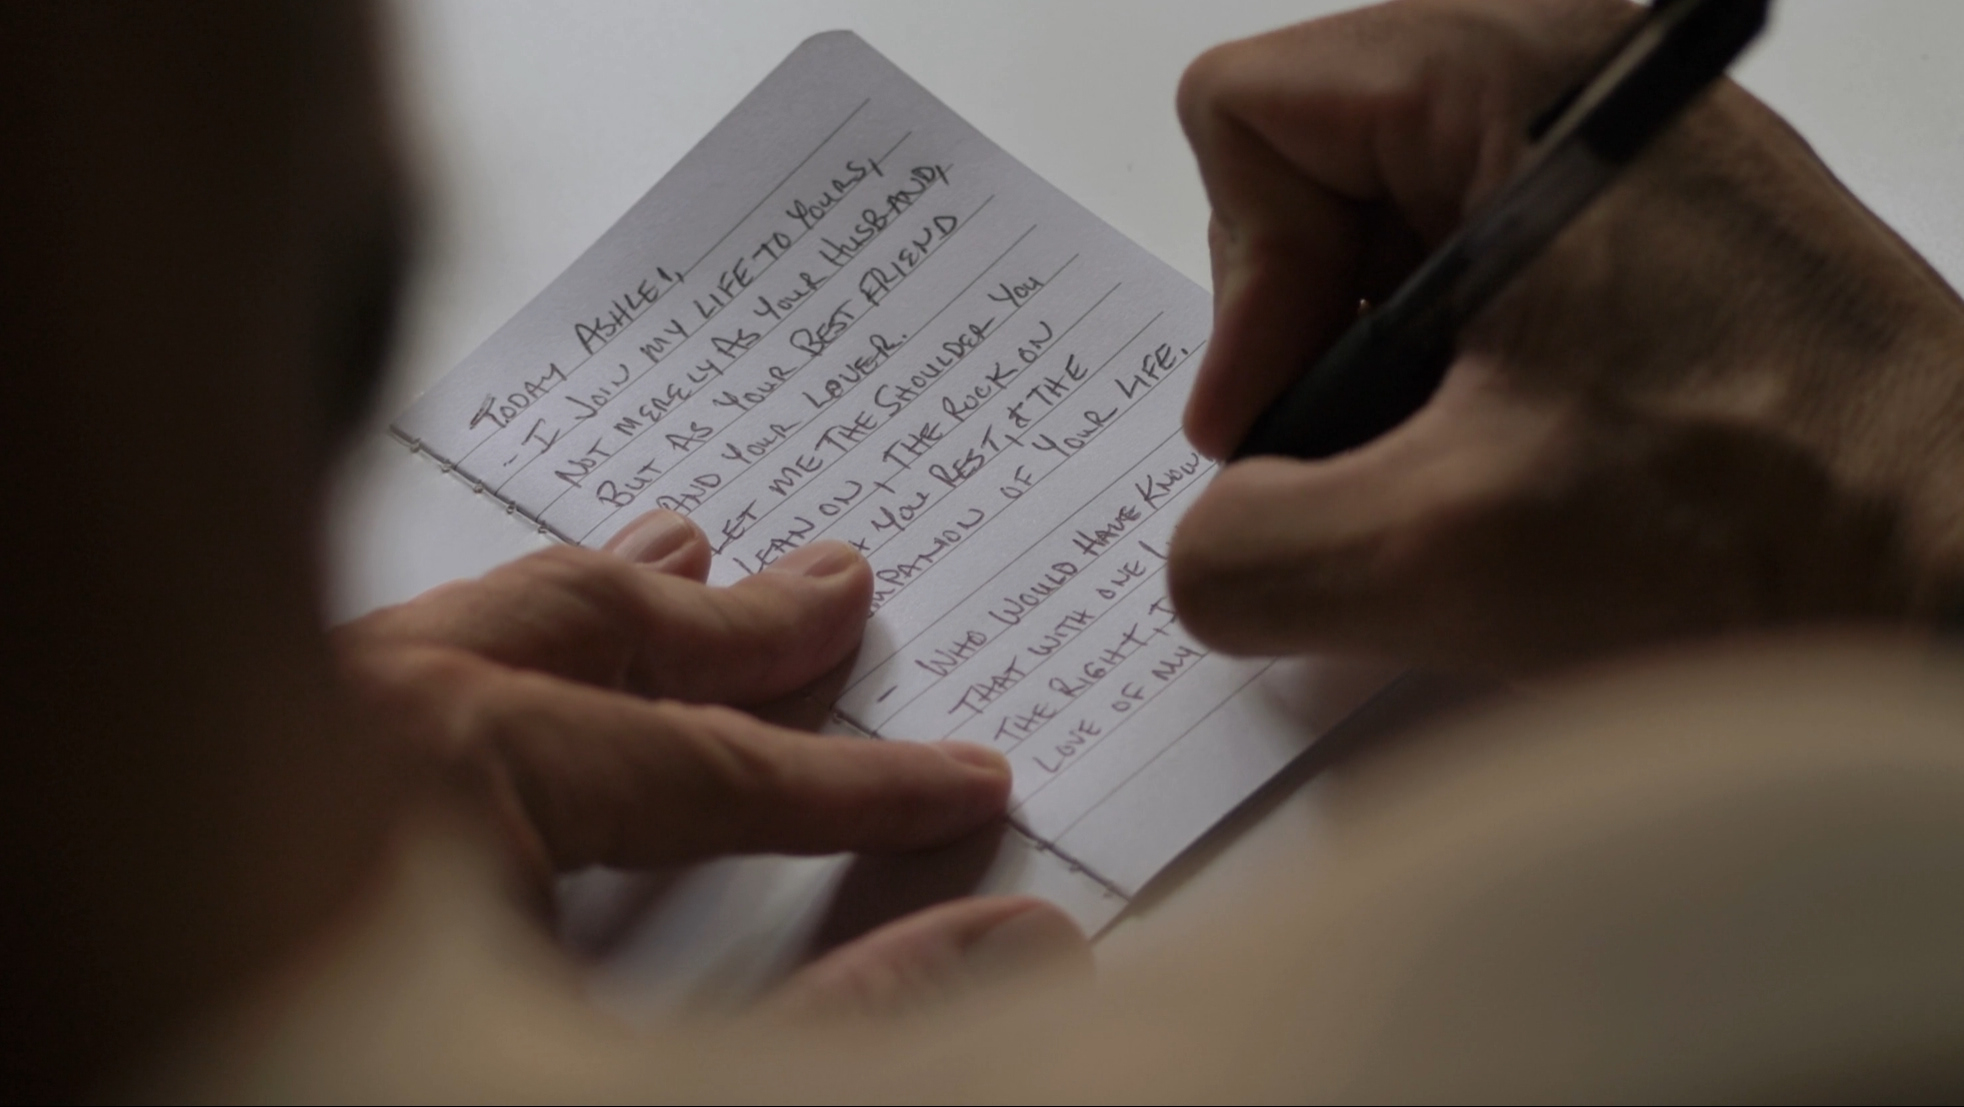 TODAY ASHLEI,
- I JOIN MY LIFE TO YOURS,
NOT MERELY AS YOUR HUSBAND,
BUT AS YOUR BEST FRIEND
AND YOUR LOVER.
LET ME THE SHOULDER YOU
LEAN ON, THE ROCK ON
YOU REST, & THE
OF YOUR LIFE.
- WHO WOULD HAVE KNOWN
THAT WITH ONE
THE RIGHT, I
LOVE OF MY